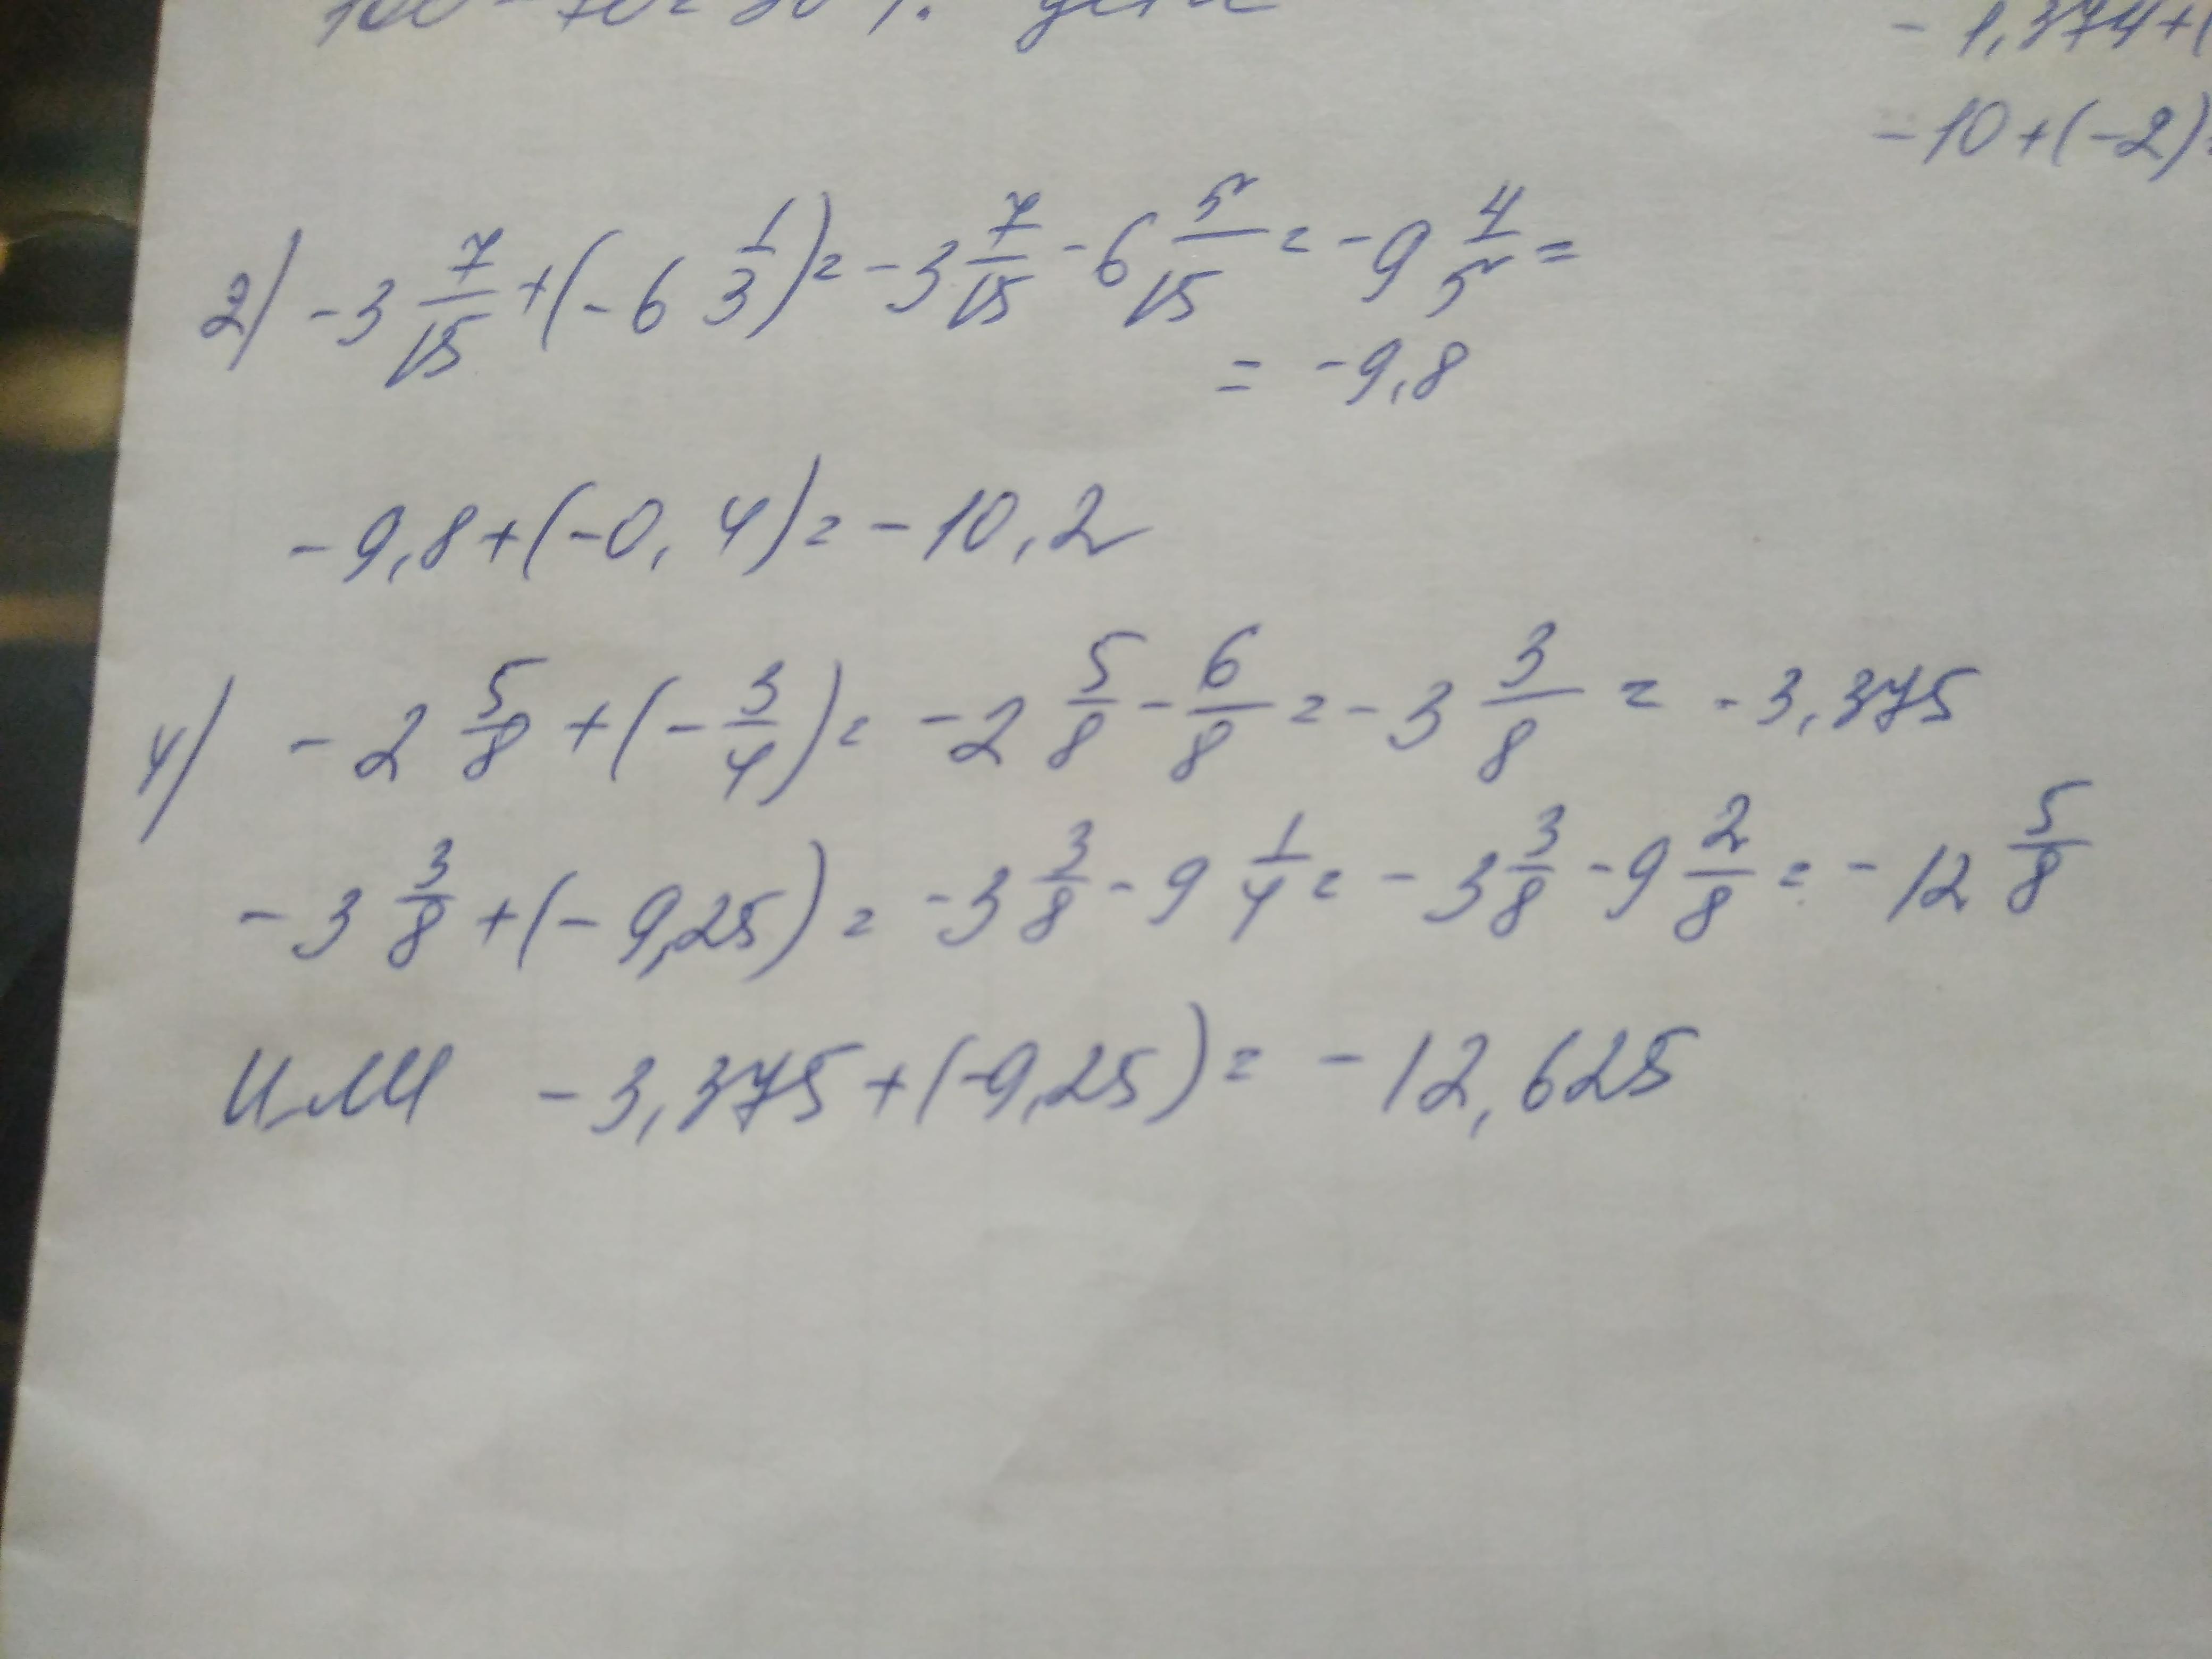 - 1,374+(
-10+(-2)=
2) -3 7/15 +(-6 1/3)= -3 7/15 -6 5/15 = -9 4/5 =
= -9,8
-9,8+(-0,4)= -10,2
4) -2 5/8 +(- 3/4)= -2 5/8 - 6/8 = -3 3/8 = -3,375
-3 3/8 +(-9,25)= -3 3/8 -9 1/4 = -3 3/8 -9 2/8 = -12 5/8
или -3,375+(-9,25)= -12,625